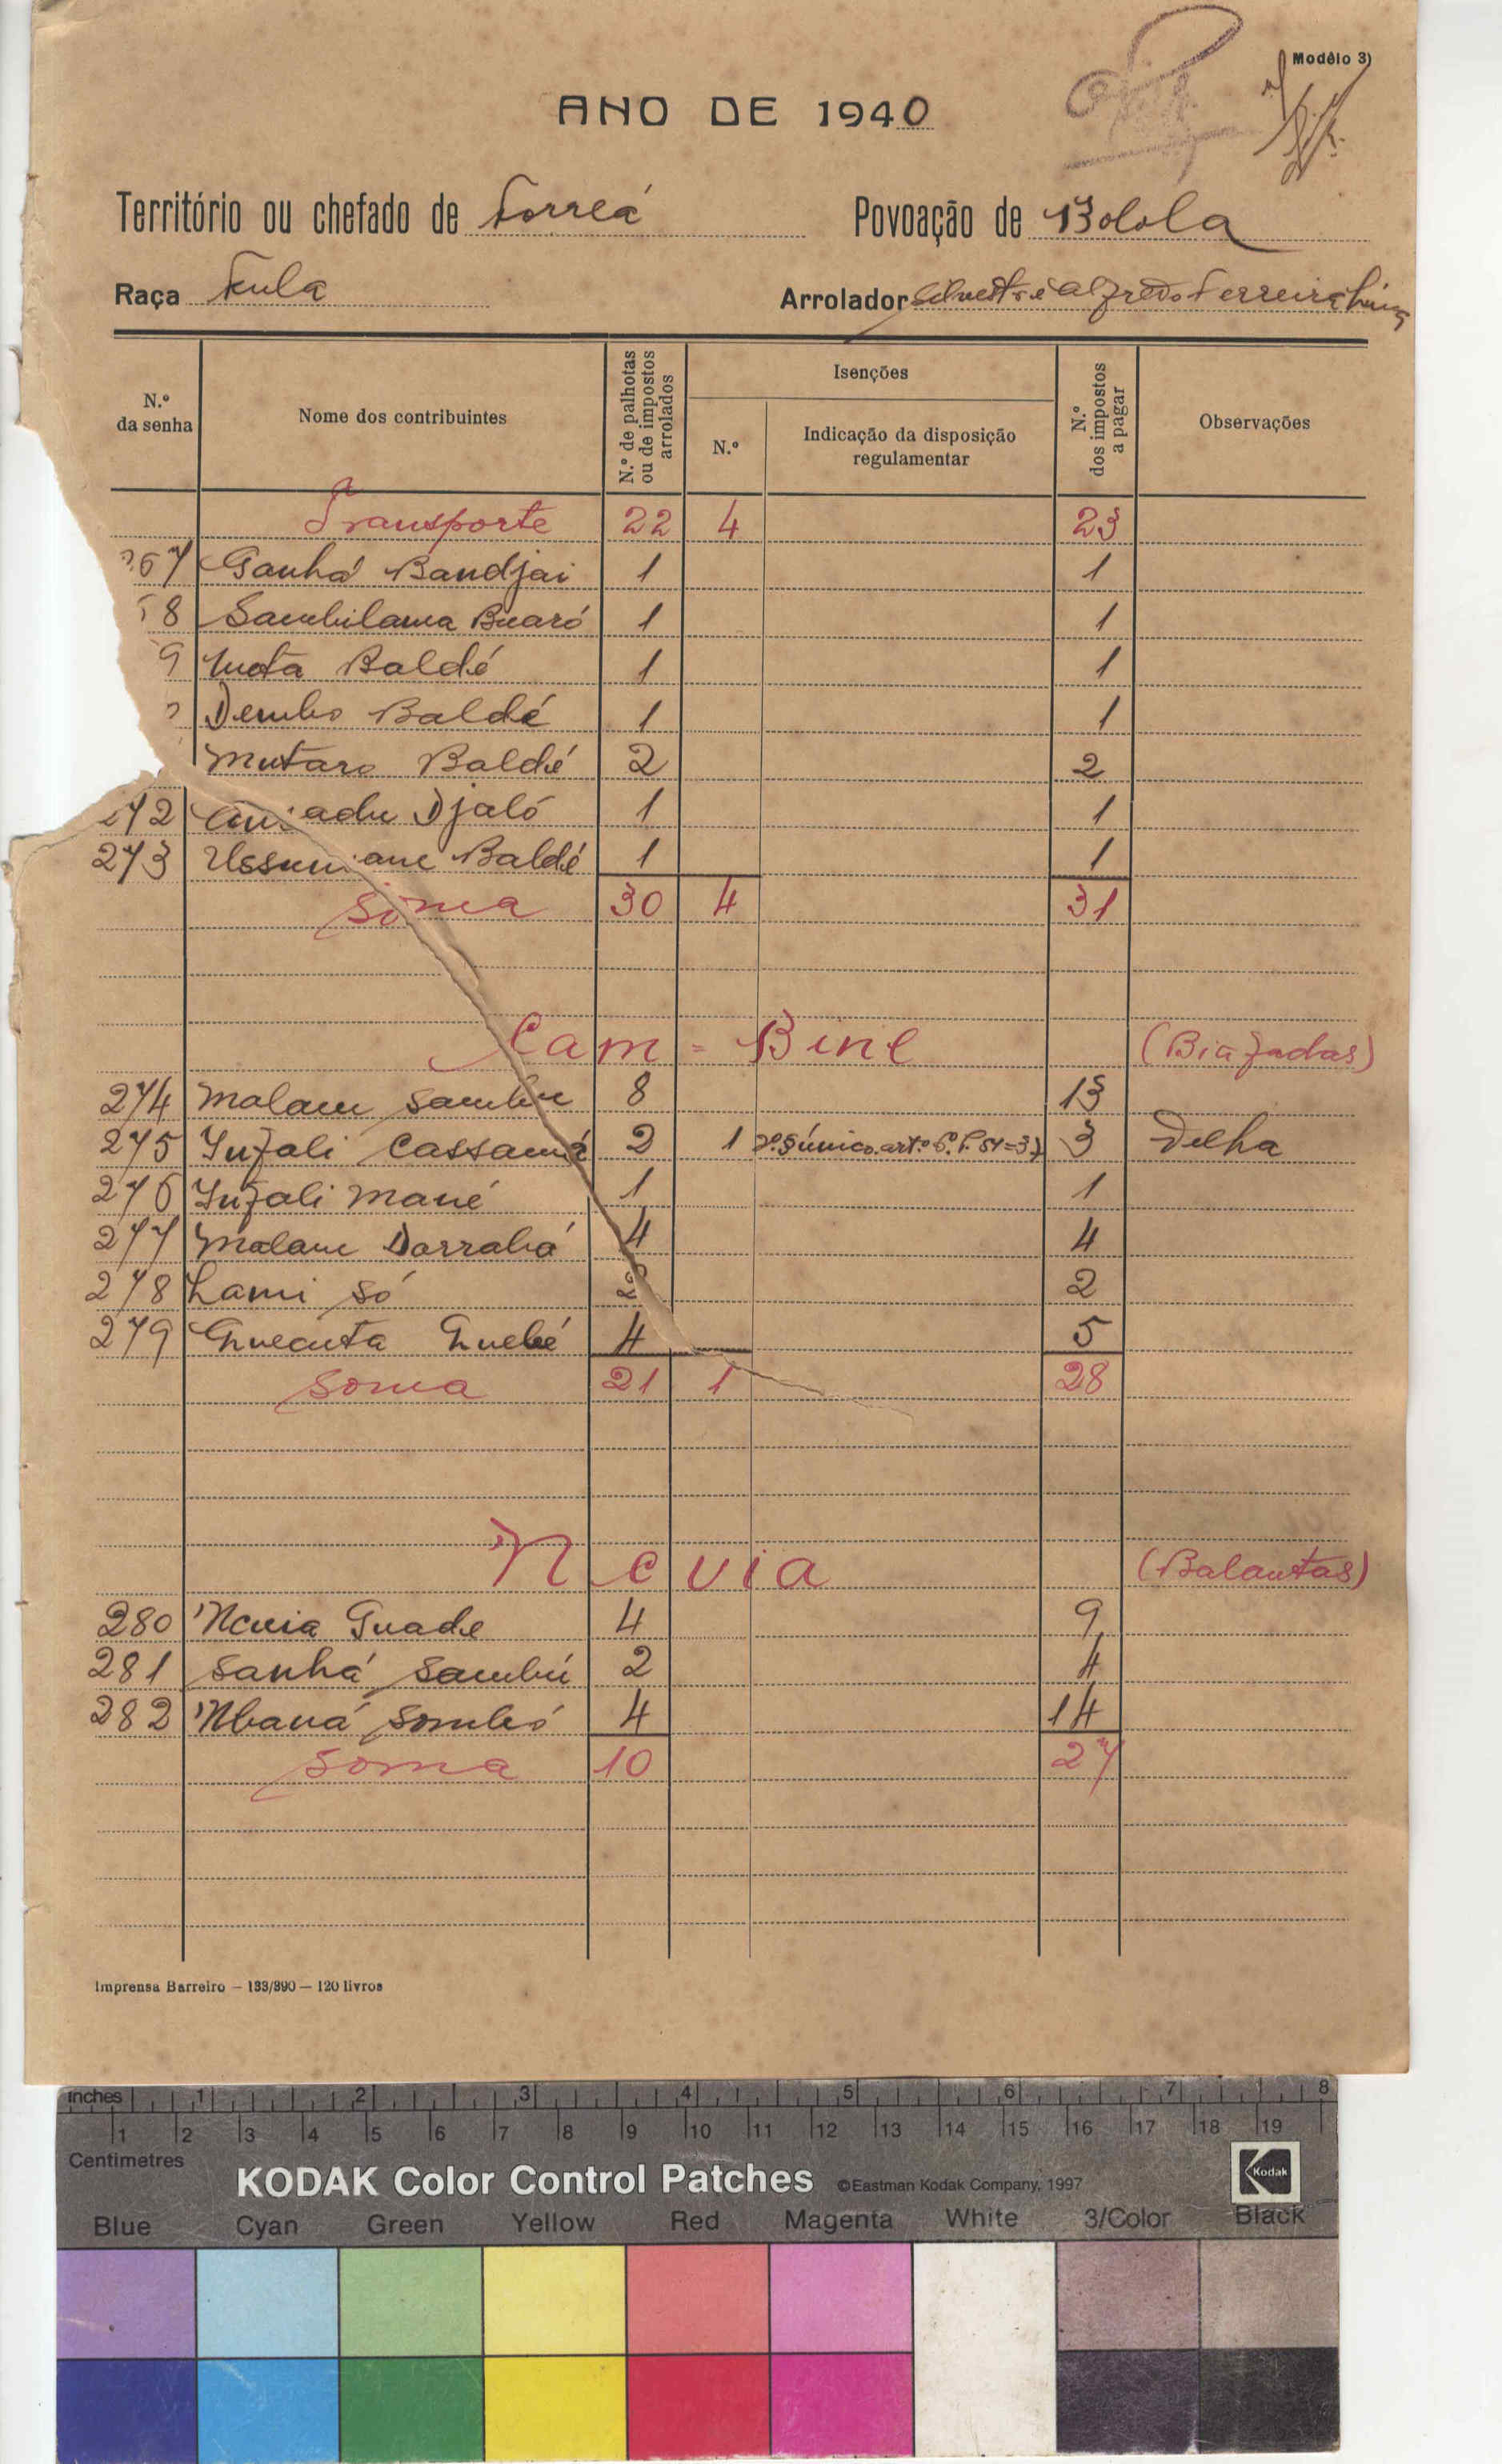 Modêlo 3)
ANO DE 1940
Território ou chefado de Forreá Povoação de Bolola
Raça Fula Arrolador Silvestre Alfredo Ferreira
N.º da senha Nome dos contribuintes N.º de palhotas ou de impostos arrolados Isenções N.º Indicação da disposição regulamentar N.º dos impostos a pagar Observações
Transporte 22 4 23
267 Ganhá Bandjai 1 1
8 Sambilama Buaró 1 1
9 Mota Baldé 1 1
Dembo Baldé 1 1
Mutaro Baldé 2 2
272 Amadu Djaló 1 1
273 Ussumane Baldé 1 1
Soma 30 4 31
Cam-Bine (Biafadas)
274 Malam Sambu 8 13
275 Infali Cassamá 2 1 § único art.º 3 Velha
276 Infali Mané 1 1
277 Malam Darrabá 4 4
278 Lami Só 2 2
279 Quecuta Quebé 4 5
Soma 21 1 28
Ncuia (Balantas)
280 Ncuia Guade 4 9
281 Sanhá Sambú 2 4
282 Nbaná Sombó 4 14
Soma 10 27
Imprensa Barreiro — 133/390 — 120 livros
inches 1 2 3 4 5 6 7 8
1 2 3 4 5 6 7 8 9 10 11 12 13 14 15 16 17 18 19
Centimetres
KODAK Color Control Patches ©Eastman Kodak Company, 1997 Kodak
Blue Cyan Green Yellow Red Magenta White 3/Color Black